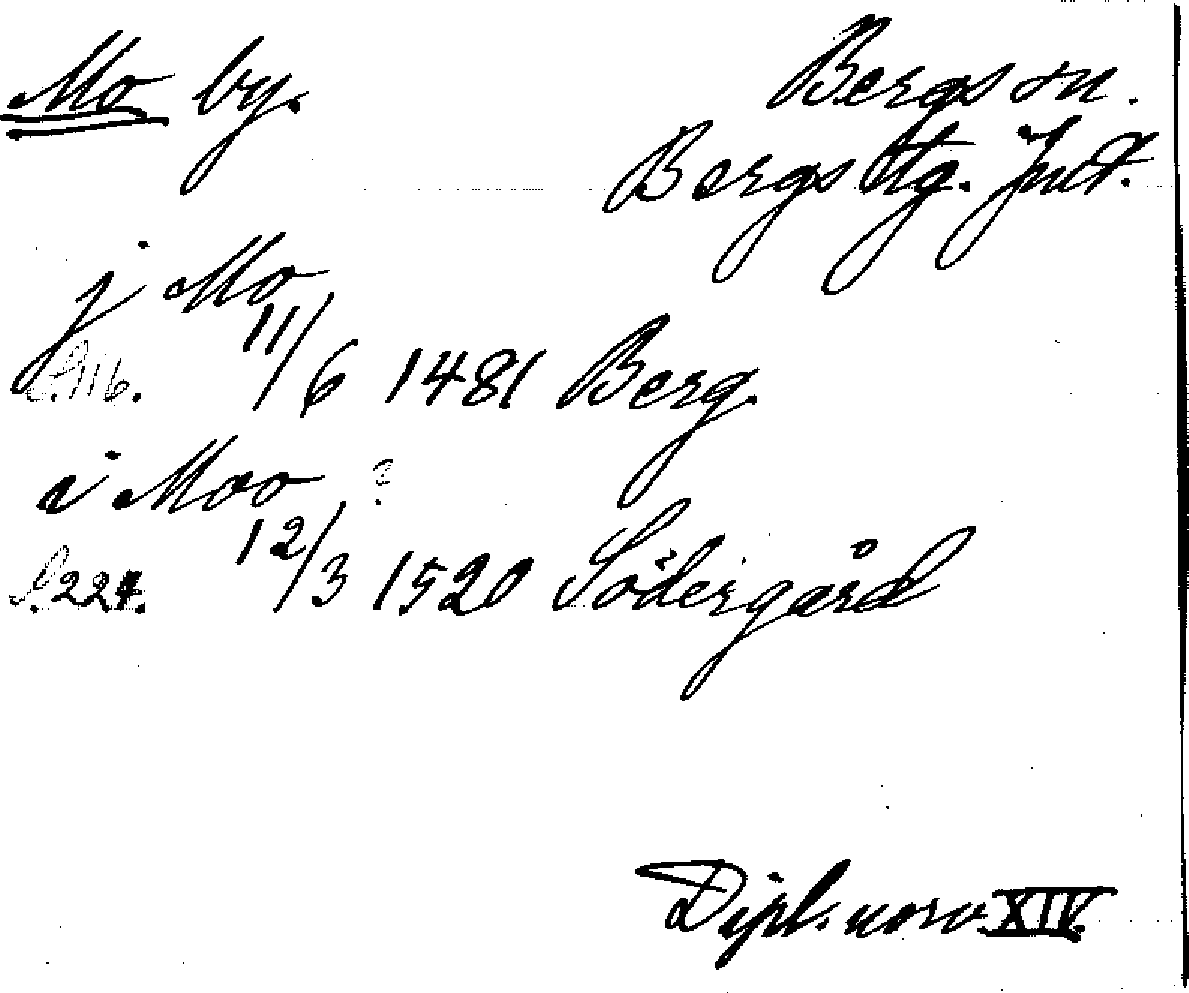 Mo by.
Bergs sn.
Bergs tg. Jmt.
j Mo
S. 116. 11/6 1481 Berg.
i Moo ?
S. 224. 12/3 1520 Södergård
Dipl. norv. XIV.